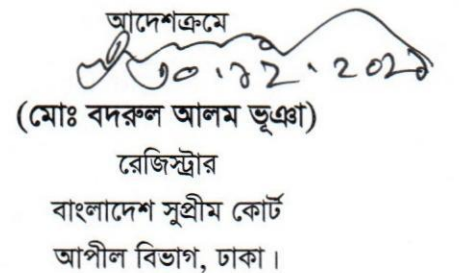 আদেশক্রমে
(মোঃ বদরুল আলম ভূঞা)
রেজিস্ট্রার
বাংলাদেশ সুপ্রীম কোর্ট
আপীল বিভাগ, ঢাকা।